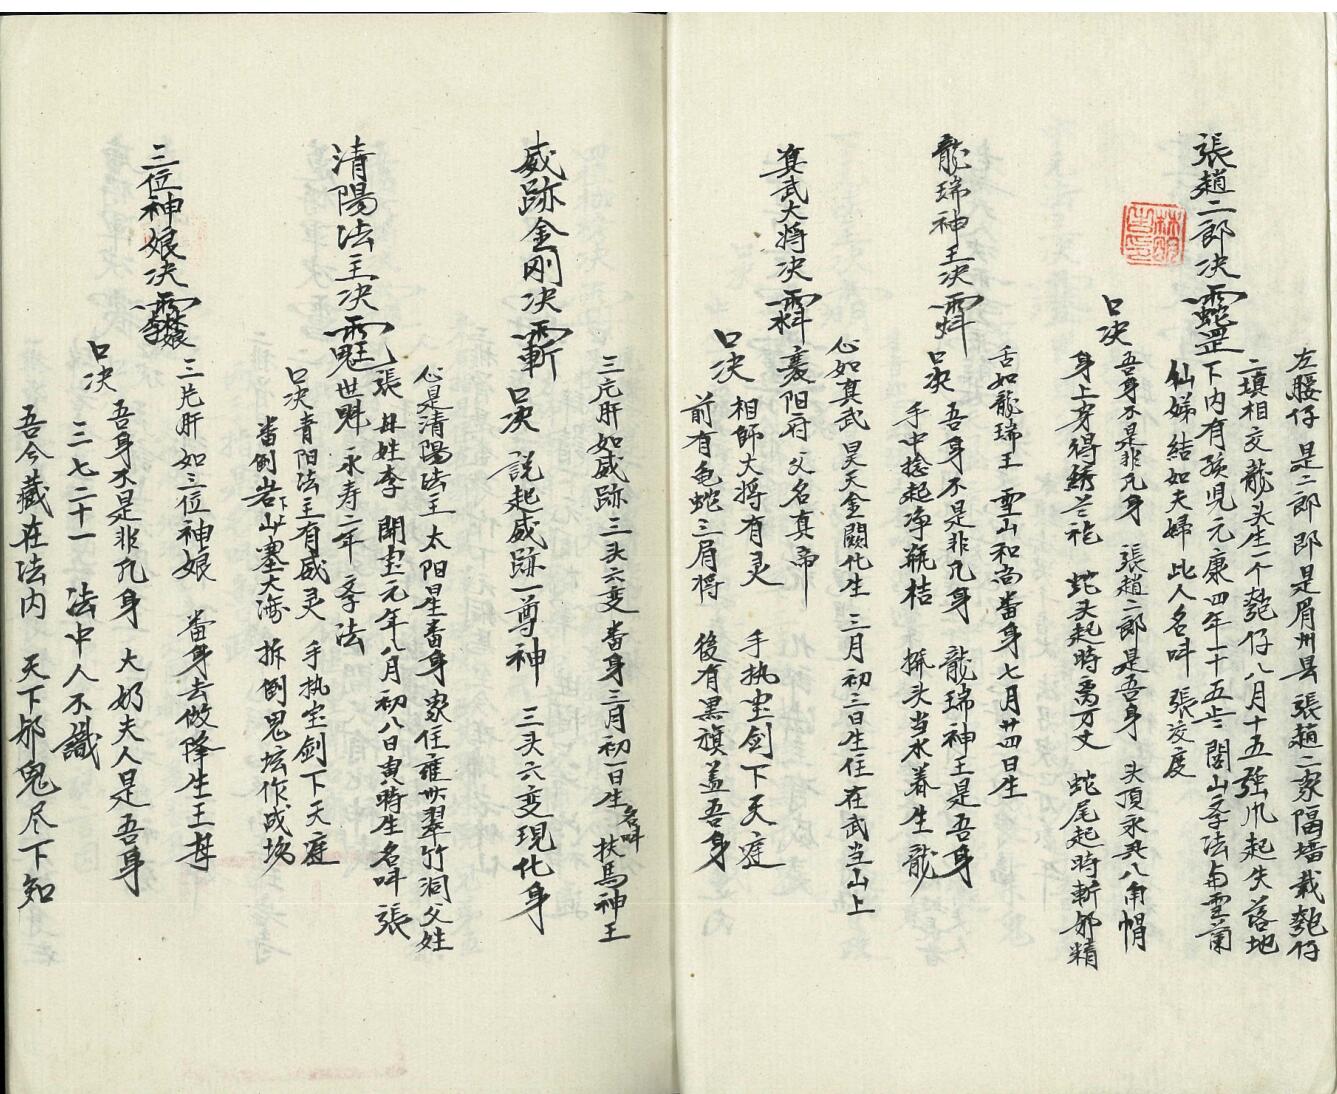 左腰仔是二郎郎是眉州县張趙二家隔墙栽匏仔
張趙二郎决
二填相交龍头生一个匏仔八月十五強风起失落地
下内有孩児元康四年十五岁閭山孝法与雲蘭
仙娣結如夫婦此人名叫張交度
口决
吾身不是非凡身 張趙二郎是吾身 头頂永求八角帽
身上穿得綉兰袍 蛇头起時萬万丈 蛇尾起時斬邪精
龍瑞神王决
舌如龍瑞王 雪山和尚番身七月廿四日生
口决
吾身不是非凡身 龍瑞神王是吾身
手中捻起净瓶桔 搋头当水养生龍
真武大将决
心如真武昊天金闕化生三月初三日生住在武当山上
襄阳府父名真帝
口决
相師大将有灵 手执宝剑下天庭
前有龟蛇二肩将 後有黑旗盖吾身
威跡金刚决
三片肝如威跡三头六变番身三月初一日生名叫扶馬神王
口决
說起威跡一尊神 三头六变現化身
清陽法王决
心是清陽法王太阳星番身家住雍州翠竹洞父姓
張 母姓李 開宝元年八月初八日寅時生名叫張
世魁 永寿二年孝法
口决
青阳法王有威灵 手执宝剑下天庭
番倒岩山塞大海 拆倒鬼坛作成垅
三位神娘决
三片肝如三位神娘 番身去做降生王母
口决
吾身不是非凡身 大奶夫人是吾身
三七二十一 法中人不識
吾今藏在法内 天下邪鬼尽下知